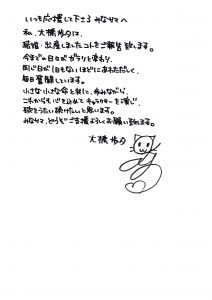 いつも応援して下さる みなさまへ
私、大橋歩夕は、
結婚・出産しましたコトをご報告致します。
今までの日々がガラリと変わり、
同じ日が1日もないほどにあわただしく、
毎日奮闘しています。
小さな小さな命と共に、歩みながら、
これからも心を込めてキャラクターを演じ、
歌をうたい続けたいと思います。
みなさま、どうぞご支援よろしくお願い致します。
大橋歩夕